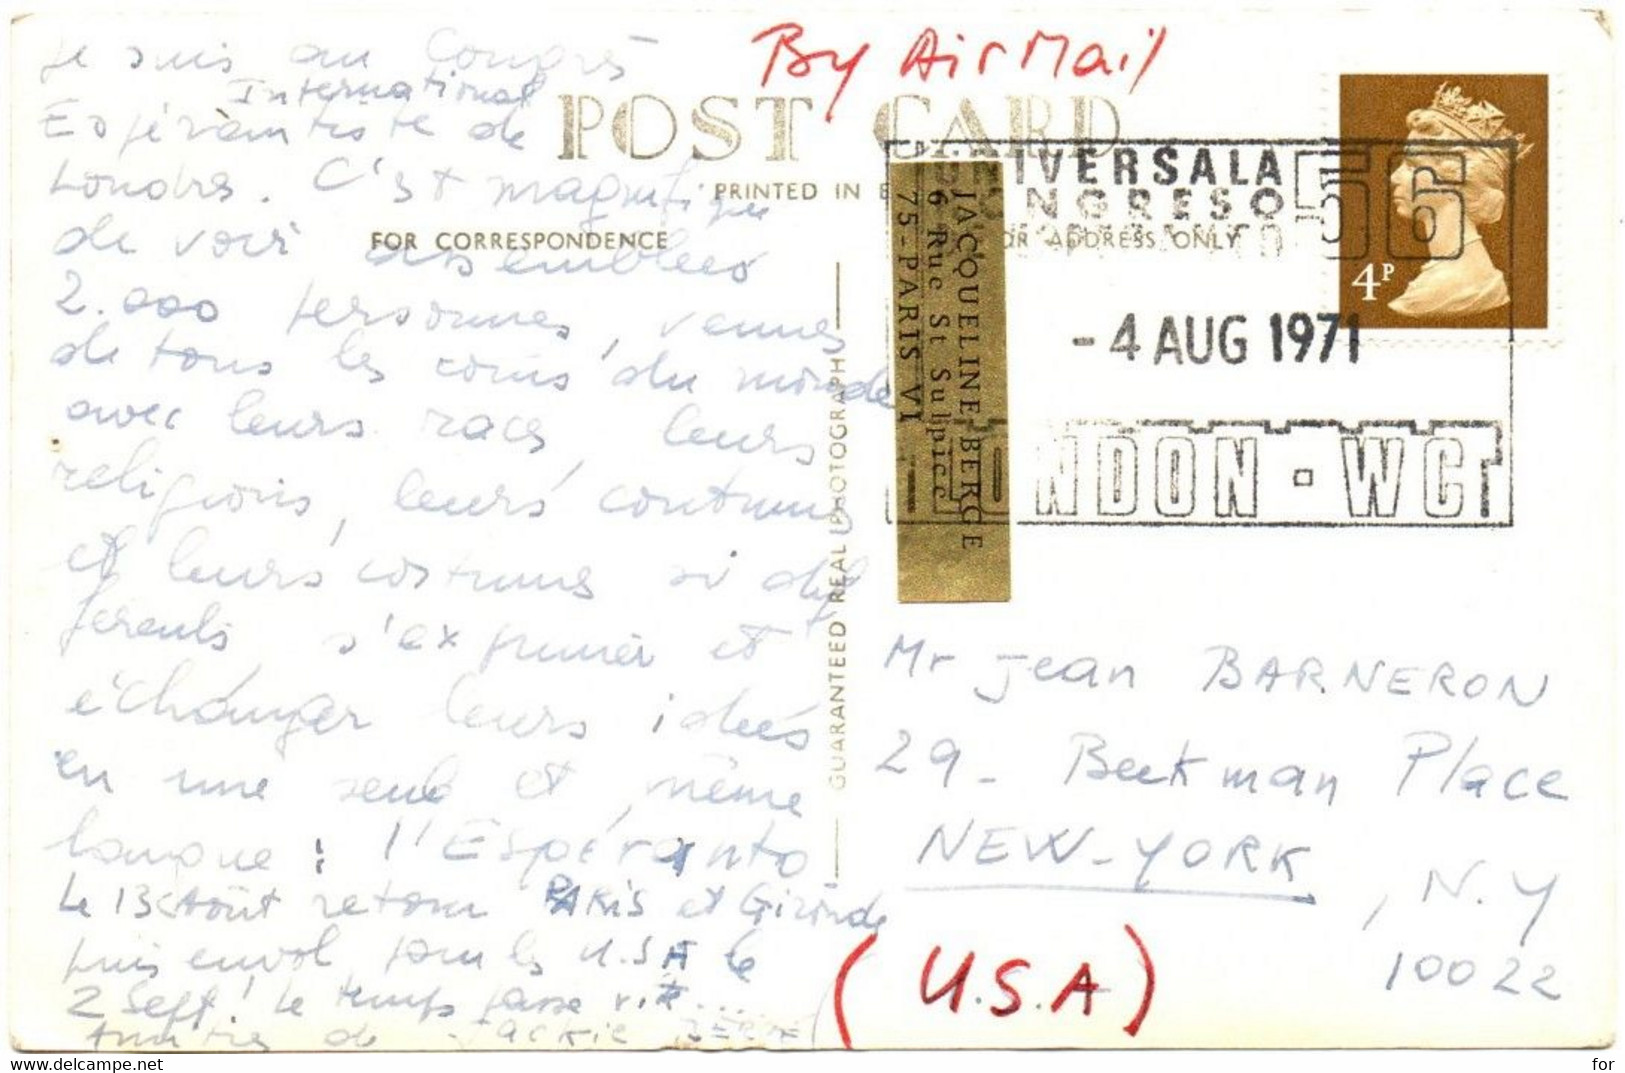 Je suis au Congrès
International
Espérantiste de
Londres. C'est magnifique
de voir assemblées
2.000 personnes, venues
de tous les coins du monde
avec leurs races leurs
religions, leurs coutumes
et leurs costumes si dif
ferents s'exprimer et
échanger leurs idées
en une seule et même
langue : l'Espéranto
Le 13 Août retour PARIS et Gironde
puis envol pour les U.S.A le
2 Sept! Le temps passe vite...
Amitiés de Jackie BERGE
By Air Mail
POST CARD
PRINTED IN
FOR CORRESPONDENCE
FOR ADDRESS ONLY
GUARANTEED REAL PHOTOGRAPH
JACQUELINE BERGE
6 Rue St Sulpice
75-PARIS VI
UNIVERSALA
KONGRESO
56
-4 AUG 1971
LONDON · WC1
4P
Mr Jean BARNERON
29 - Beekman Place
NEW-YORK, N.Y
10022
(U.S.A)
delcampe.net
for